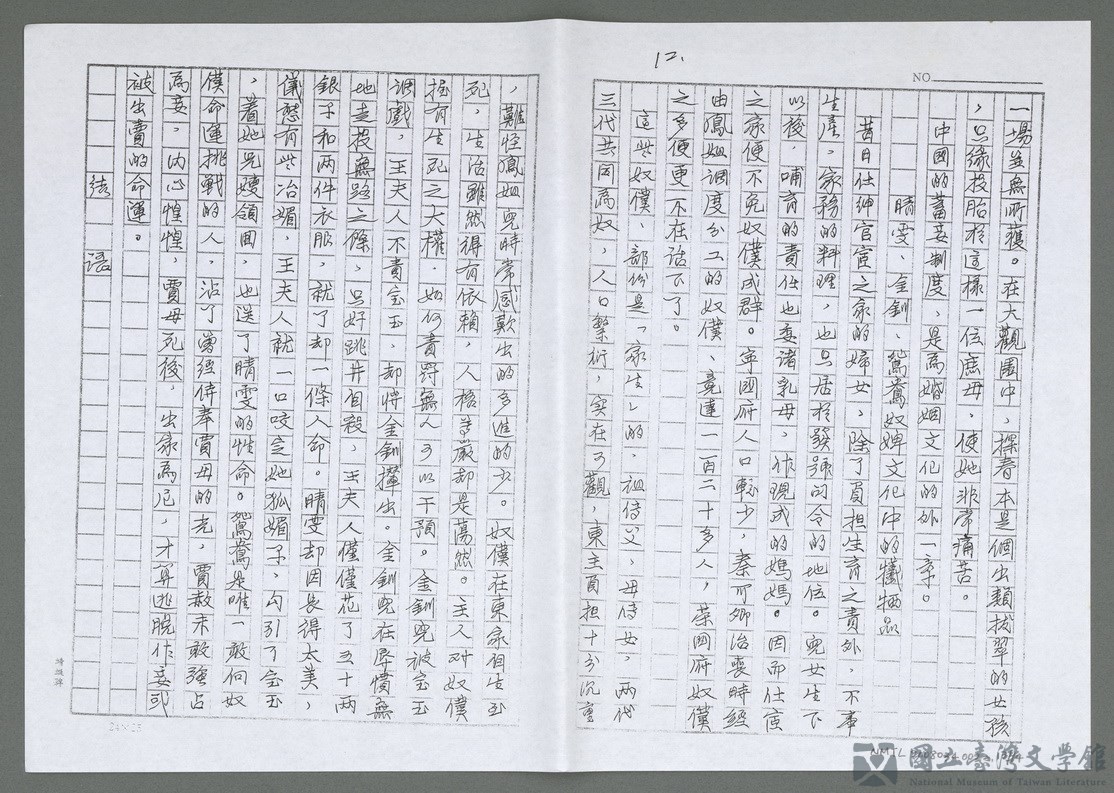 12.
NO
一場並無所獲。在大觀園中,探春本是個出類拔翠的女孩
,只緣投胎於這樣一位庶母,使她非常痛苦。
中國的蓄妾制度,是為婚姻文化的外一章。
晴雯、金釧、鴛鴦奴婢文化中的犧牲品
昔日仕紳官宦之家的婦女,除了負担生育之責外,不事
生產。家務的料理,也只居於發號司令的地位。兒女生下
以後,哺育的責任也委諸乳母,作現成的媽媽。因而仕宦
之家便不免奴僕成群。寧國府人口較少,秦可卿治喪時經
由鳳姐調度分工的奴僕、竟達一百二十多人,榮國府奴僕
之多便更不在話下了。
這些奴僕、部份是「家生」的,祖侍父,母侍女,兩代
三代共同為奴,人口繁衍,实在可觀,東主負担十分沉重
,難怪鳳姐兒時常感歎出的多進的少。奴僕在東家自生至
死,生活雖然得有依賴,人格尊嚴却是蕩然。主人对奴僕
握有生死之大權.如何責罸無人可以干預。金釧兒被宝玉
調戲,王夫人不責宝玉、却將金釧攆出。金釧兒在辱憤無
地走投無路之餘、只好跳井自殺,王夫人僅僅花了五十兩
銀子和两件衣服,就了却一條人命。晴雯却因長得太美,
儀態有些冶媚,王夫人就一口咬定她狐媚子,勾引了宝玉
,著她兄嫂領回,也送了晴雯的性命。鴛鴦是唯一敢向奴
僕命運挑戰的人,沾了曾經侍奉賈母的光,賈赦未敢強占
為妾,内心惶惶,賈母死後,出家為尼,才算逃脫作妾或
被出賣的命運。
結　語
24×25
國立臺灣文學館
National Museum of Taiwan Literature